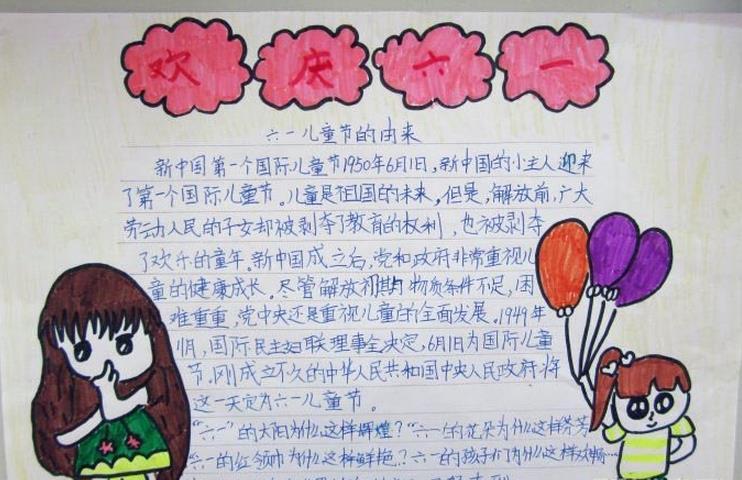 欢庆六一
六一儿童节的由来
新中国第一个国际儿童节1950年6月1日,新中国的小主人迎来
了第一个国际儿童节。儿童是祖国的未来,但是,解放前,广大
劳动人民的子女却被剥夺了教育的权利,也被剥夺
了欢乐的童年。新中国成立后,党和政府非常重视儿
童的健康成长。尽管解放初期,物质条件不足,困
难重重,党中央还是重视儿童的全面发展。1949年
11月,国际民主妇联理事会决定,6月1日为国际儿童
节。刚成立不久的中华人民共和国中央人民政府将
这一天定为六一儿童节。
“六一”的太阳为什么这样辉煌?“六一的花朵为什么这样芬芳
“六一的红领巾为什么这样鲜艳?“六一的孩子们为什么这样欢畅…